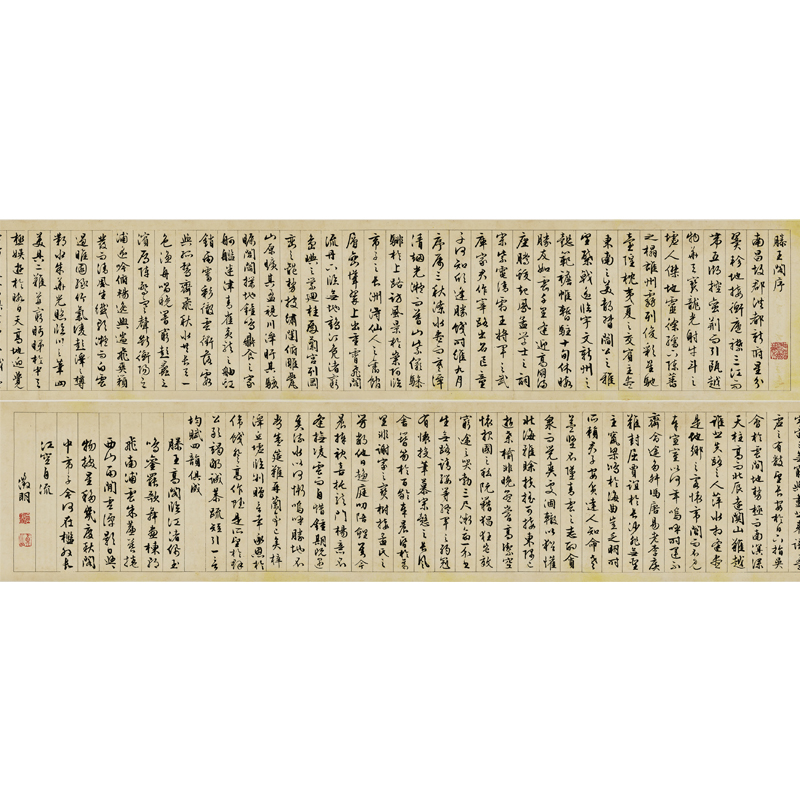 滕王閣序
南昌故郡洪都新府星分
翼軫地接衡廬襟三江而
帶五湖控蠻荊而引甌越
物華天寶龍光射牛斗之
墟人傑地靈徐孺下陳蕃
之榻雄州霧列俊彩星馳
臺隍枕夷夏之交賓主盡
東南之美都督閻公之雅
望棨戟遙臨宇文新州之
懿範襜帷暫駐十旬休暇
勝友如雲千里逢迎高朋滿
座騰蛟起鳳孟學士之詞
宗紫電清霜王將軍之武
庫家君作宰路出名區童
子何知躬逢勝餞時維九月
序屬三秋潦水盡而寒潭
清煙光凝而暮山紫儼驂
騑於上路訪風景於崇阿臨
帝子之長洲得仙人之舊館
層巒聳翠上出重霄飛閣
流丹下臨無地鶴汀鳧渚窮
島嶼之縈迴桂殿蘭宮列岡
巒之體勢披繡闥俯雕甍
山原曠其盈視川澤盱其駭
矚閭閻撲地鐘鳴鼎食之家
舸艦迷津青雀黃龍之舳虹
銷雨霽彩徹雲衢落霞
與孤鶩齊飛秋水共長天一
色漁舟唱晚響窮彭蠡之
濱雁陣驚寒聲斷衡陽之
浦遙吟俯暢逸興遄飛爽籟
發而清風生纖歌凝而白雲
遏睢園綠竹氣凌彭澤之樽
鄴水朱華光照臨川之筆四
美具二難并窮睇眄於中天
極娛遊於暇日天高地迥覺
虛之有數望長安於日下指吳
會於雲間地勢極而南溟深
天柱高而北辰遠關山難越
誰悲失路之人萍水相逢盡
是他鄉之客懷帝閽而不見
奉宣室以何年嗚呼時運不
齊命途多舛馮唐易老李廣
難封屈賈誼於長沙非無聖
主竄梁鴻於海曲豈乏明時
所賴君子安貧達人知命老
當益堅不墜青雲之志酌貪
泉而覺爽處涸轍以猶懽
北海雖賒扶搖可接東隅已
逝桑榆非晚孟嘗高潔空
懷報國之心阮籍猖狂豈效
窮途之哭勃三尺微命一介書
生無路請纓等終軍之弱冠
有懷投筆慕宗愨之長風
舍簪笏於百齡奉晨昏於萬
里非謝家之寶樹接孟氏之
芳鄰他日趨庭叨陪鯉對今
晨捧袂喜托龍門楊意不
逢撫凌雲而自惜鍾期既遇
奏流水以何慚嗚呼勝地不
常盛筵難再蘭亭已矣梓
澤丘墟臨別贈言幸承恩於
偉餞登高作賦是所望於群
公敢竭鄙誠恭疏短引一言
均賦四韻俱成
滕王高閣臨江渚佩玉
鳴鸞罷歌舞畫棟朝
飛南浦雲朱簾暮捲
西山雨閒雲潭影日悠
物換星移幾度秋閣
中帝子今何在檻外長
江空自流
徵明